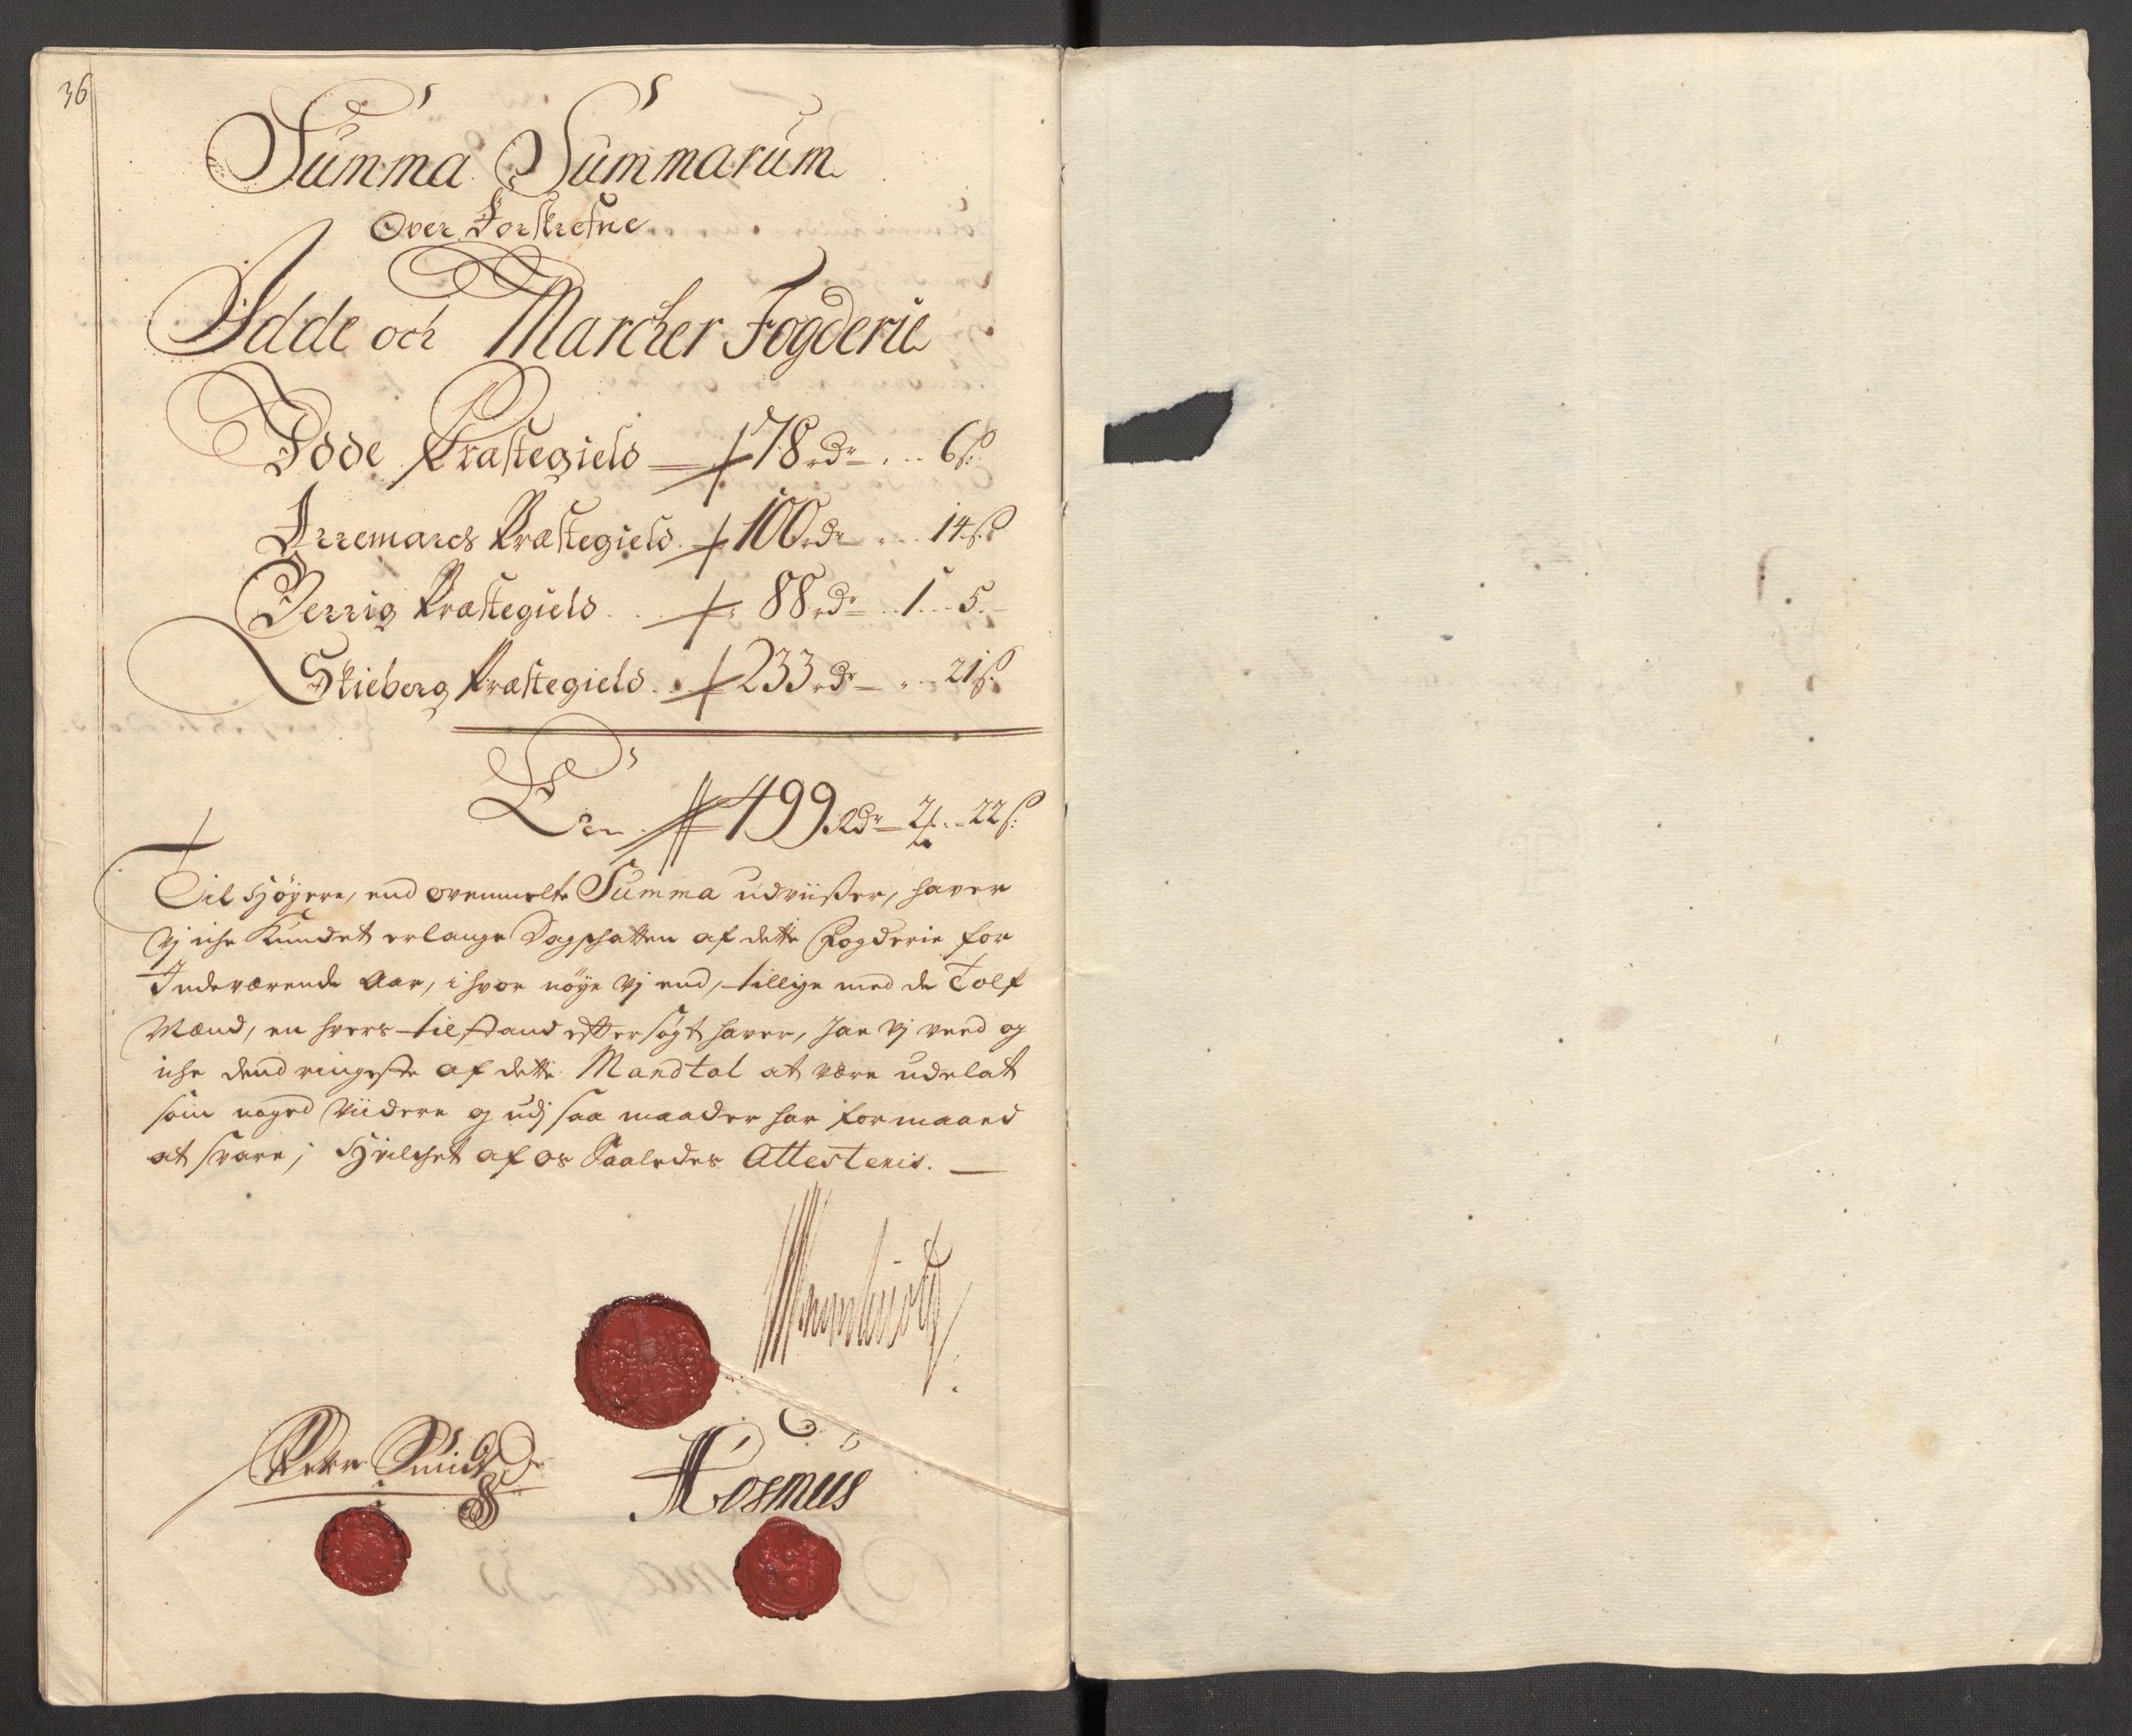 36
Summa Summarum
Over Forskrefne
Idde och Marcker Fogderie
Idde Præstegield — 78 rdr - . . 6 s:
Arremarcs Præstegield . 100 rdr - . . 14 s:
Berrig Præstegield . . . 88 rdr . . 1 . . 5 . -
Skieberg Præstegield . . 233 rdr - . . 21 s:
Er 499 Rdr - 2 . . 22 s:
Til Höyere, end ovenmelte Summa udviisser, haver
Vj iche Kundet erlange Dagschatten af dette Fogderie for
Indeværende Aar, i hvor nöye Vj end, tillige med de Tolf
Mænd, en hvers tilstand eftersögt haver, Jae Vj veed og
iche dend ringeste af dette Mandtal at være udelat
som noged Viidere og udj saa maader har formaaed
at svare; Hvilchet af os Saaledes Attesteris. —
Peder Smidt